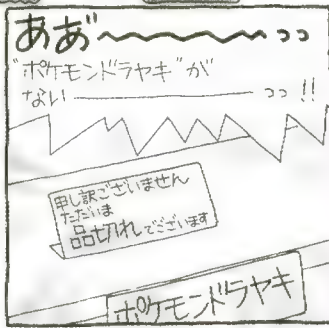 ああ゛〜〜〜〜〜っっ
"ポケモンドラヤキ"が
ない————————っっ!!
申し訳ございません
ただいま
品切れでございます
ポケモンドラヤキ